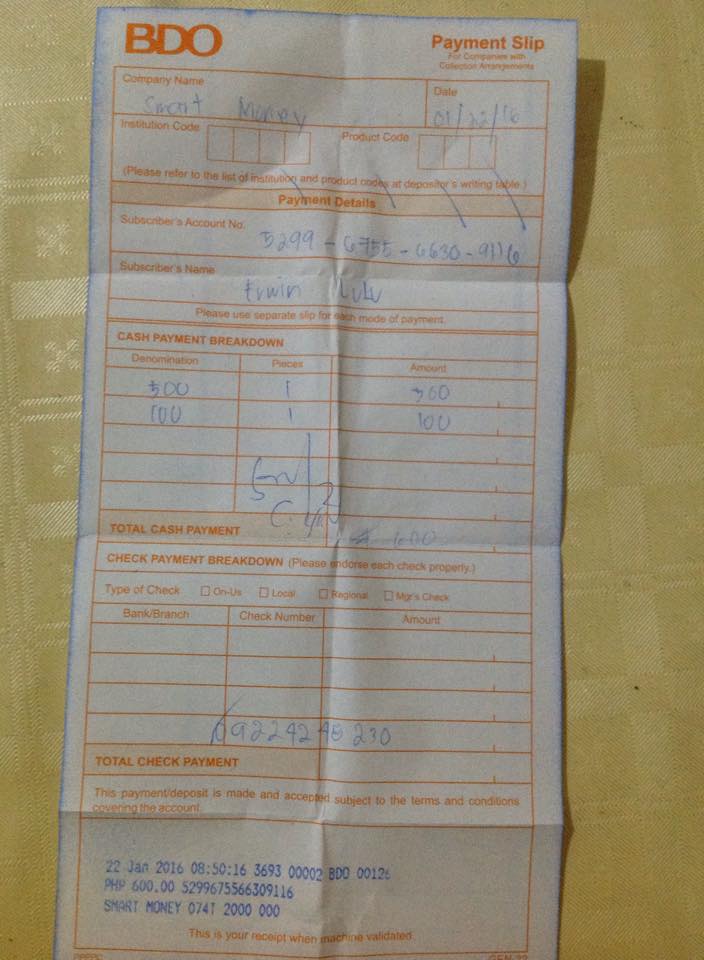 BDO
Payment Slip
For Companies with
Collection Arrangements
Company Name
Smart Money
Date
01/22/16
Institution Code
Product Code
(Please refer to the list of institution and product codes at depositor's writing table.)
Payment Details
Subscriber's Account No.
5299-6755-6630-9116
Subscriber's Name
Erwin Lulu
Please use separate slip for each mode of payment.
CASH PAYMENT BREAKDOWN
Denomination Pieces Amount
500 1 500
100 1 100
TOTAL CASH PAYMENT 600
CHECK PAYMENT BREAKDOWN (Please endorse each check properly.)
Type of Check On-Us Local Regional Mgr's Check
Bank/Branch Check Number Amount
TOTAL CHECK PAYMENT
This payment/deposit is made and accepted subject to the terms and conditions
covering the account.
22 Jan 2016 08:50:16 3693 00002 BDO 00126
PHP 600.00 5299675566309116
SMART MONEY 074T 2000 000
This is your receipt when machine validated